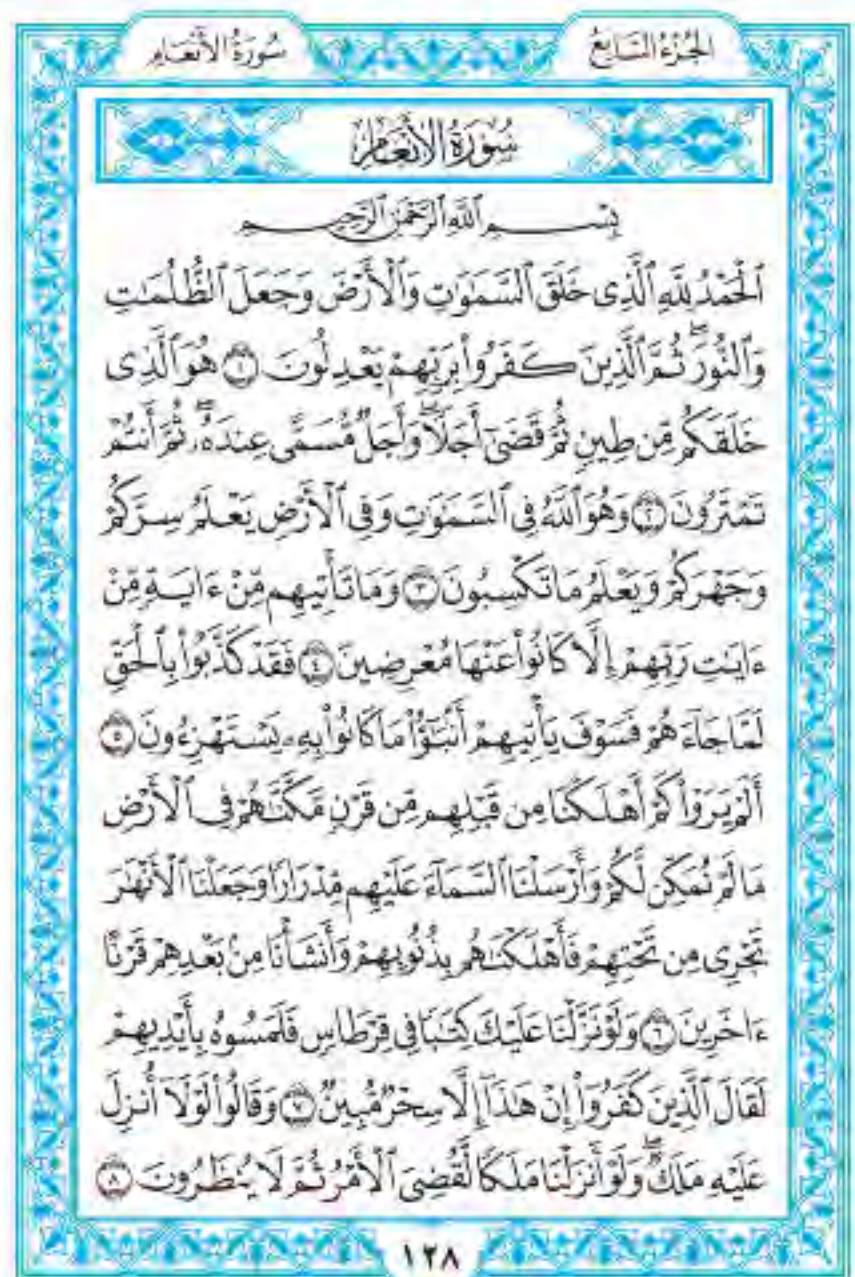 الجُزْءُ السَّابِعُ
سُورَةُ الأَنْعَامِ
سُورَةُ الأَنْعَامِ
بِسْمِ ٱللَّهِ ٱلرَّحْمَٰنِ ٱلرَّحِيمِ
ٱلْحَمْدُ لِلَّهِ ٱلَّذِى خَلَقَ ٱلسَّمَٰوَٰتِ وَٱلْأَرْضَ وَجَعَلَ ٱلظُّلُمَٰتِ
وَٱلنُّورَۖ ثُمَّ ٱلَّذِينَ كَفَرُوا۟ بِرَبِّهِمْ يَعْدِلُونَ ١ هُوَ ٱلَّذِى
خَلَقَكُم مِّن طِينٍ ثُمَّ قَضَىٰٓ أَجَلًاۖ وَأَجَلٌ مُّسَمًّى عِندَهُۥۖ ثُمَّ أَنتُمْ
تَمْتَرُونَ ٢ وَهُوَ ٱللَّهُ فِى ٱلسَّمَٰوَٰتِ وَفِى ٱلْأَرْضِ يَعْلَمُ سِرَّكُمْ
وَجَهْرَكُمْ وَيَعْلَمُ مَا تَكْسِبُونَ ٣ وَمَا تَأْتِيهِم مِّنْ ءَايَةٍ مِّنْ
ءَايَٰتِ رَبِّهِمْ إِلَّا كَانُوا۟ عَنْهَا مُعْرِضِينَ ٤ فَقَدْ كَذَّبُوا۟ بِٱلْحَقِّ
لَمَّا جَآءَهُمْ فَسَوْفَ يَأْتِيهِمْ أَنۢبَٰٓؤُا۟ مَا كَانُوا۟ بِهِۦ يَسْتَهْزِءُونَ ٥
أَلَمْ يَرَوْا۟ كَمْ أَهْلَكْنَا مِن قَبْلِهِم مِّن قَرْنٍ مَّكَّنَّٰهُمْ فِى ٱلْأَرْضِ
مَا لَمْ نُمَكِّن لَّكُمْ وَأَرْسَلْنَا ٱلسَّمَآءَ عَلَيْهِم مِّدْرَارًا وَجَعَلْنَا ٱلْأَنْهَٰرَ
تَجْرِى مِن تَحْتِهِمْ فَأَهْلَكْنَٰهُم بِذُنُوبِهِمْ وَأَنشَأْنَا مِنۢ بَعْدِهِمْ قَرْنًا
ءَاخَرِينَ ٦ وَلَوْ نَزَّلْنَا عَلَيْكَ كِتَٰبًا فِى قِرْطَاسٍ فَلَمَسُوهُ بِأَيْدِيهِمْ
لَقَالَ ٱلَّذِينَ كَفَرُوٓا۟ إِنْ هَٰذَآ إِلَّا سِحْرٌ مُّبِينٌ ٧ وَقَالُوا۟ لَوْلَآ أُنزِلَ
عَلَيْهِ مَلَكٌۖ وَلَوْ أَنزَلْنَا مَلَكًا لَّقُضِىَ ٱلْأَمْرُ ثُمَّ لَا يُنظَرُونَ ٨
١٢٨